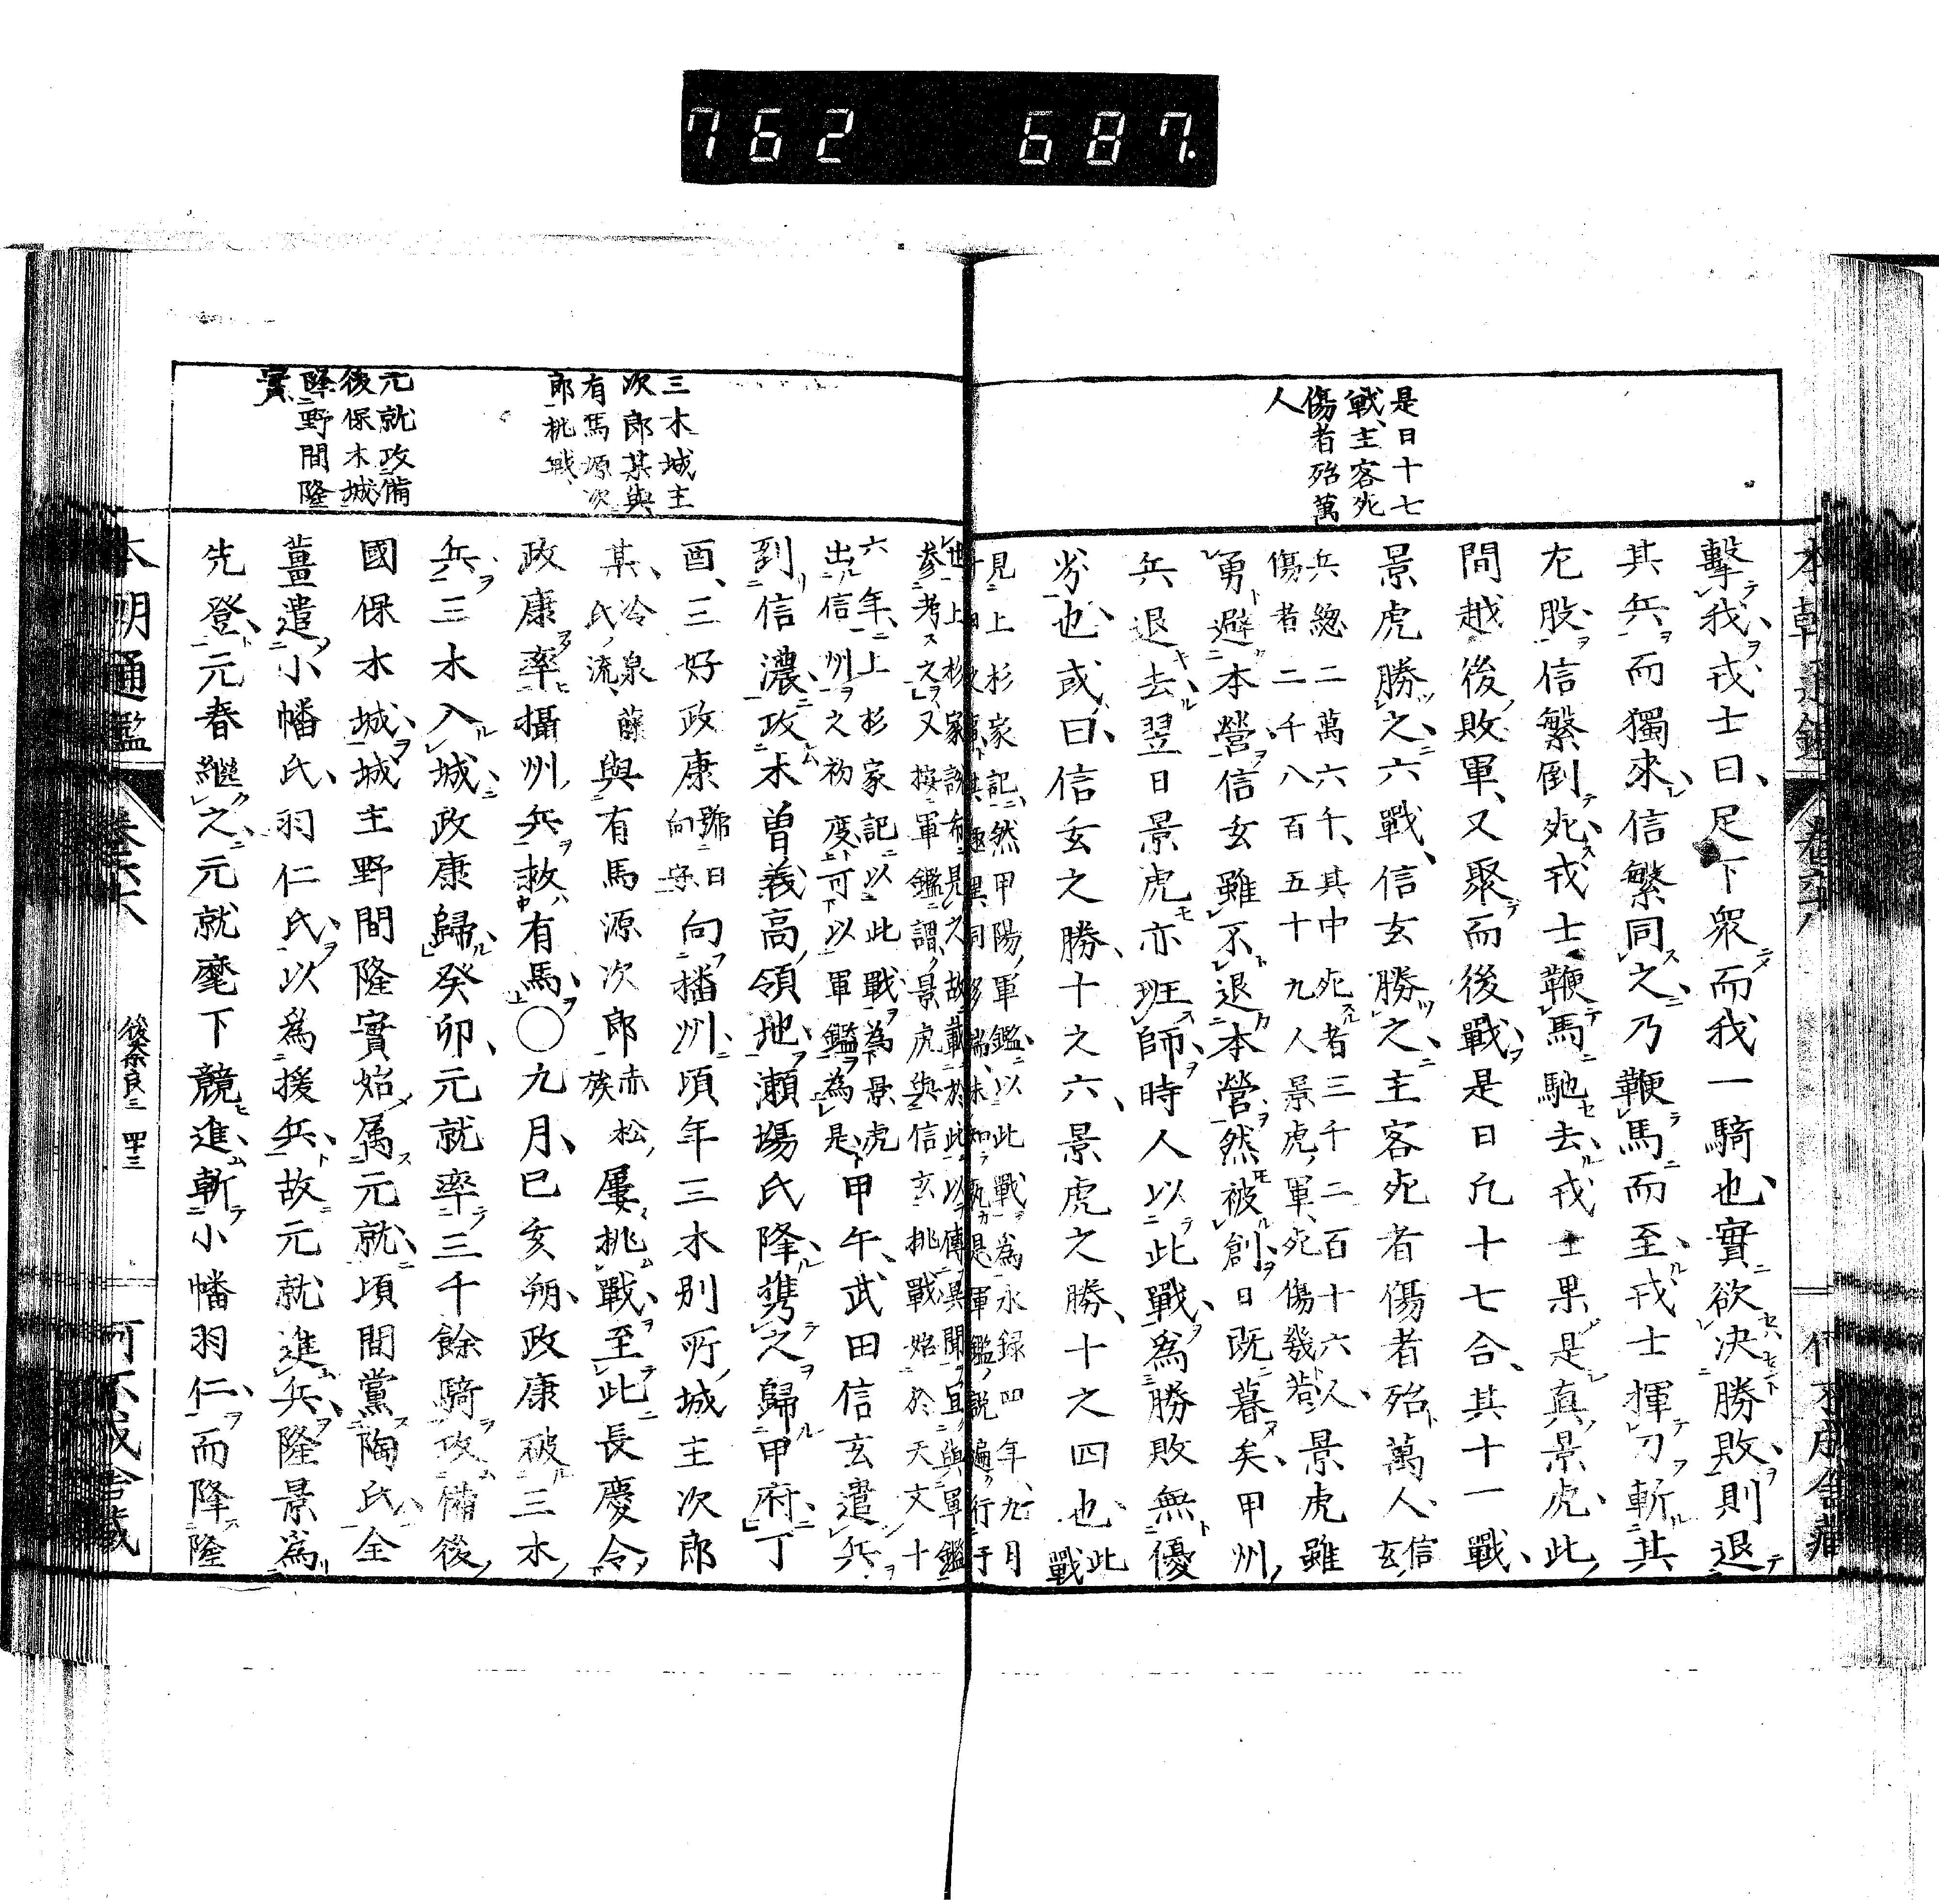 762 687.
是日十七
戰、主客死
傷者殆萬
人
擊我、戎士曰、足下衆而我一騎也、實欲決勝敗、則退
其兵而獨來、信繁同之、乃鞭馬而至、戎士揮刀斬其
左股、信繁倒死、戎士鞭馬馳去、戎士果是真景虎、此
間越後敗軍、又聚而後戰、是日凡十七合、其十一戰、
景虎勝之、六戰、信玄勝之、主客死者傷者殆萬人、信玄
兵總二萬六千、其中死者三千二百十六人、
傷者二千八百五十九人景虎軍、死傷幾若、景虎雖
勇避本營、信玄雖不退本營、然被創、日既暮矣、甲州
兵退去、翌日景虎亦班師、時人以此戰、爲勝敗無優
劣也、或曰、信玄之勝、十之六、景虎之勝、十之四也、此戰
見上杉家記、然甲陽軍鑑、以此戰爲永録四年、九月
三木城主
次郎某與
有馬源次
郎挑戰、
元就攻備
後保木城
降野間隆
實
也、上杉家說希見之、故載於此、以傳異聞、宜與軍鑑
參考之、又按軍鑑謂、景虎與信玄挑戰始於天文十
六年、上杉家記以此戰爲景虎
出信州之初度、可以軍鑑爲是、甲午、武田信玄遣兵、
到信濃、政木曾義高領地、瀬場氏降、携之歸甲府、丁
酉、三好政康號日向守向播州、頃年三木別所城主次郎
某、冷泉氏流、藤與有馬源次郎赤松族、屢挑戰、至此長慶令
政康率攝州兵救有馬〇九月、己亥朔、政康破三木
兵、三木入城、政康歸、癸卯、元就率三千餘騎攻備後
國保木城、城主野間隆實始属元就、頃間黨陶氏、全
薑遣小幡氏、羽仁氏、以爲援兵、故元就進兵、隆景爲
先登、元春繼之、元就麾下競進、斬小幡羽仁、而降隆
本朝通鑑
後奈良三 四十三